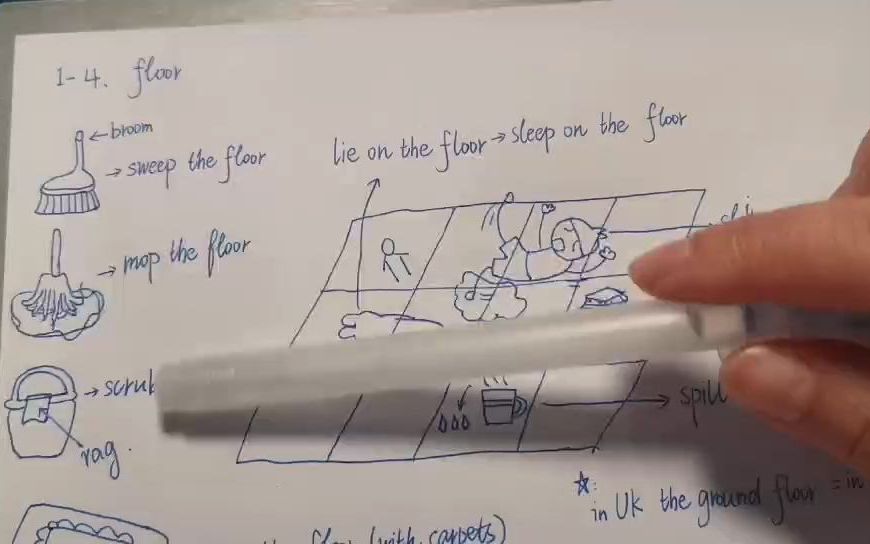 1-4. floor
broom
→ sweep the floor
lie on the floor → sleep on the floor
→ mop the floor
→ scrub
rag.
spill
☆:
in UK the ground floor = in
floor (with carpets)